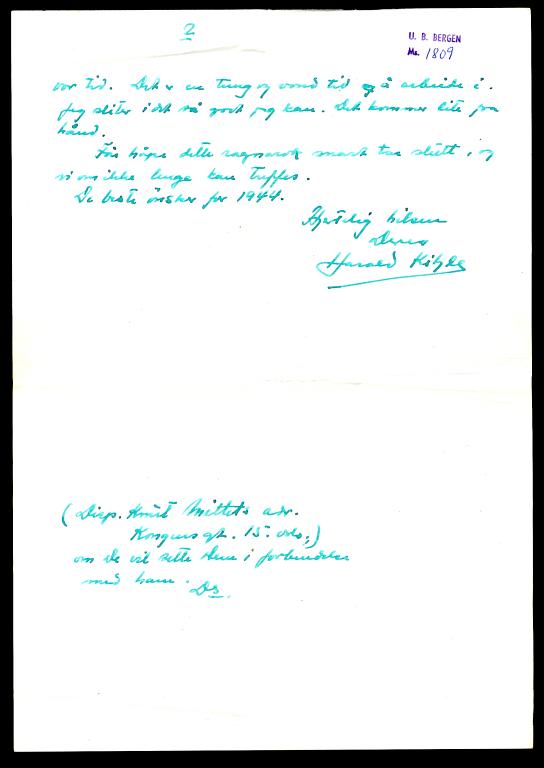 2
U. B. BERGEN
Ms. 1809
vor tid. Det er en tung og vond tid å arbeide i.
Jeg sliter i det så godt jeg kan. Det kommer lite fra
hånd.
Får håpe dette ragnarok snart tar slutt, og
vi om ikke lenge kan treffes.
De beste ønsker for 1944.
Hjertelig hilsen
Deres
Harald
(Disp. Knut adr.
Kongensgt. 15. Oslo,)
om De vil sette Dem i forbindelse
med ham.
Ds.